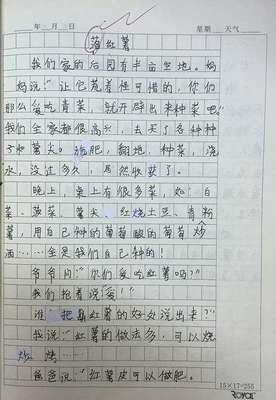 年 月 日 星期 天气
红薯
我们家的后园有半亩空地。妈
妈说："让它荒着怪可惜的，你们
那么爱吃青菜，就开辟出来种菜吧。"
我们全家都很高兴，去买了各种种
子和薯尖。施肥，翻地，种菜，浇
水，没过多久，居然收获了。
晚上，桌上有很多菜，如：白
菜、菠菜、薯尖、红烧土豆、青
薯，用自己种的葡萄酿的葡萄
酒……全是我们自己种的！
爷爷问："你们爱吃红薯吗？"
我们抢着说"爱！"
谁 把 红薯的好处说出来？"
我说："红薯的做法多，可以烧
炒 烤……
爸爸说："红薯皮可以做肥。
15×17=255
ROYAL